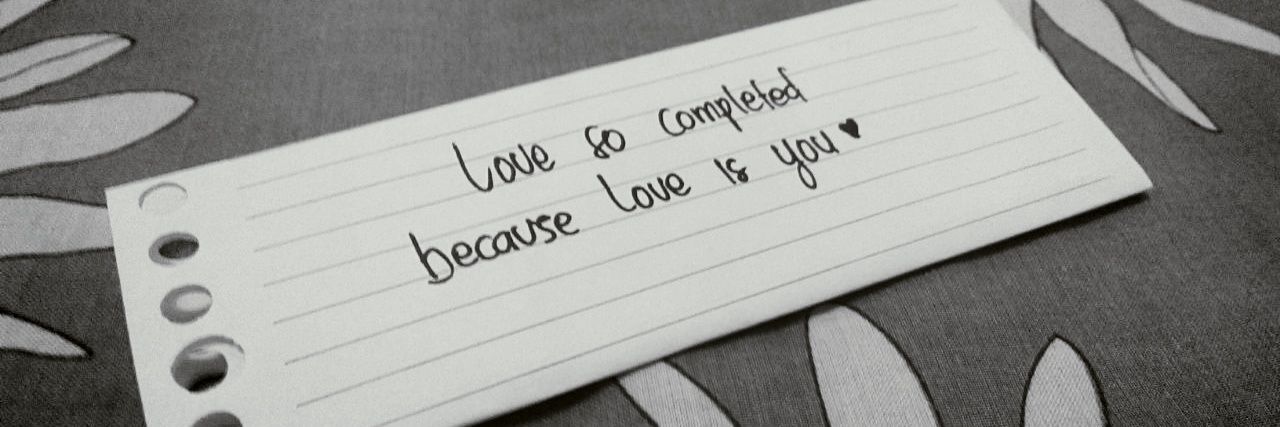 Love so completed
because love is you♥